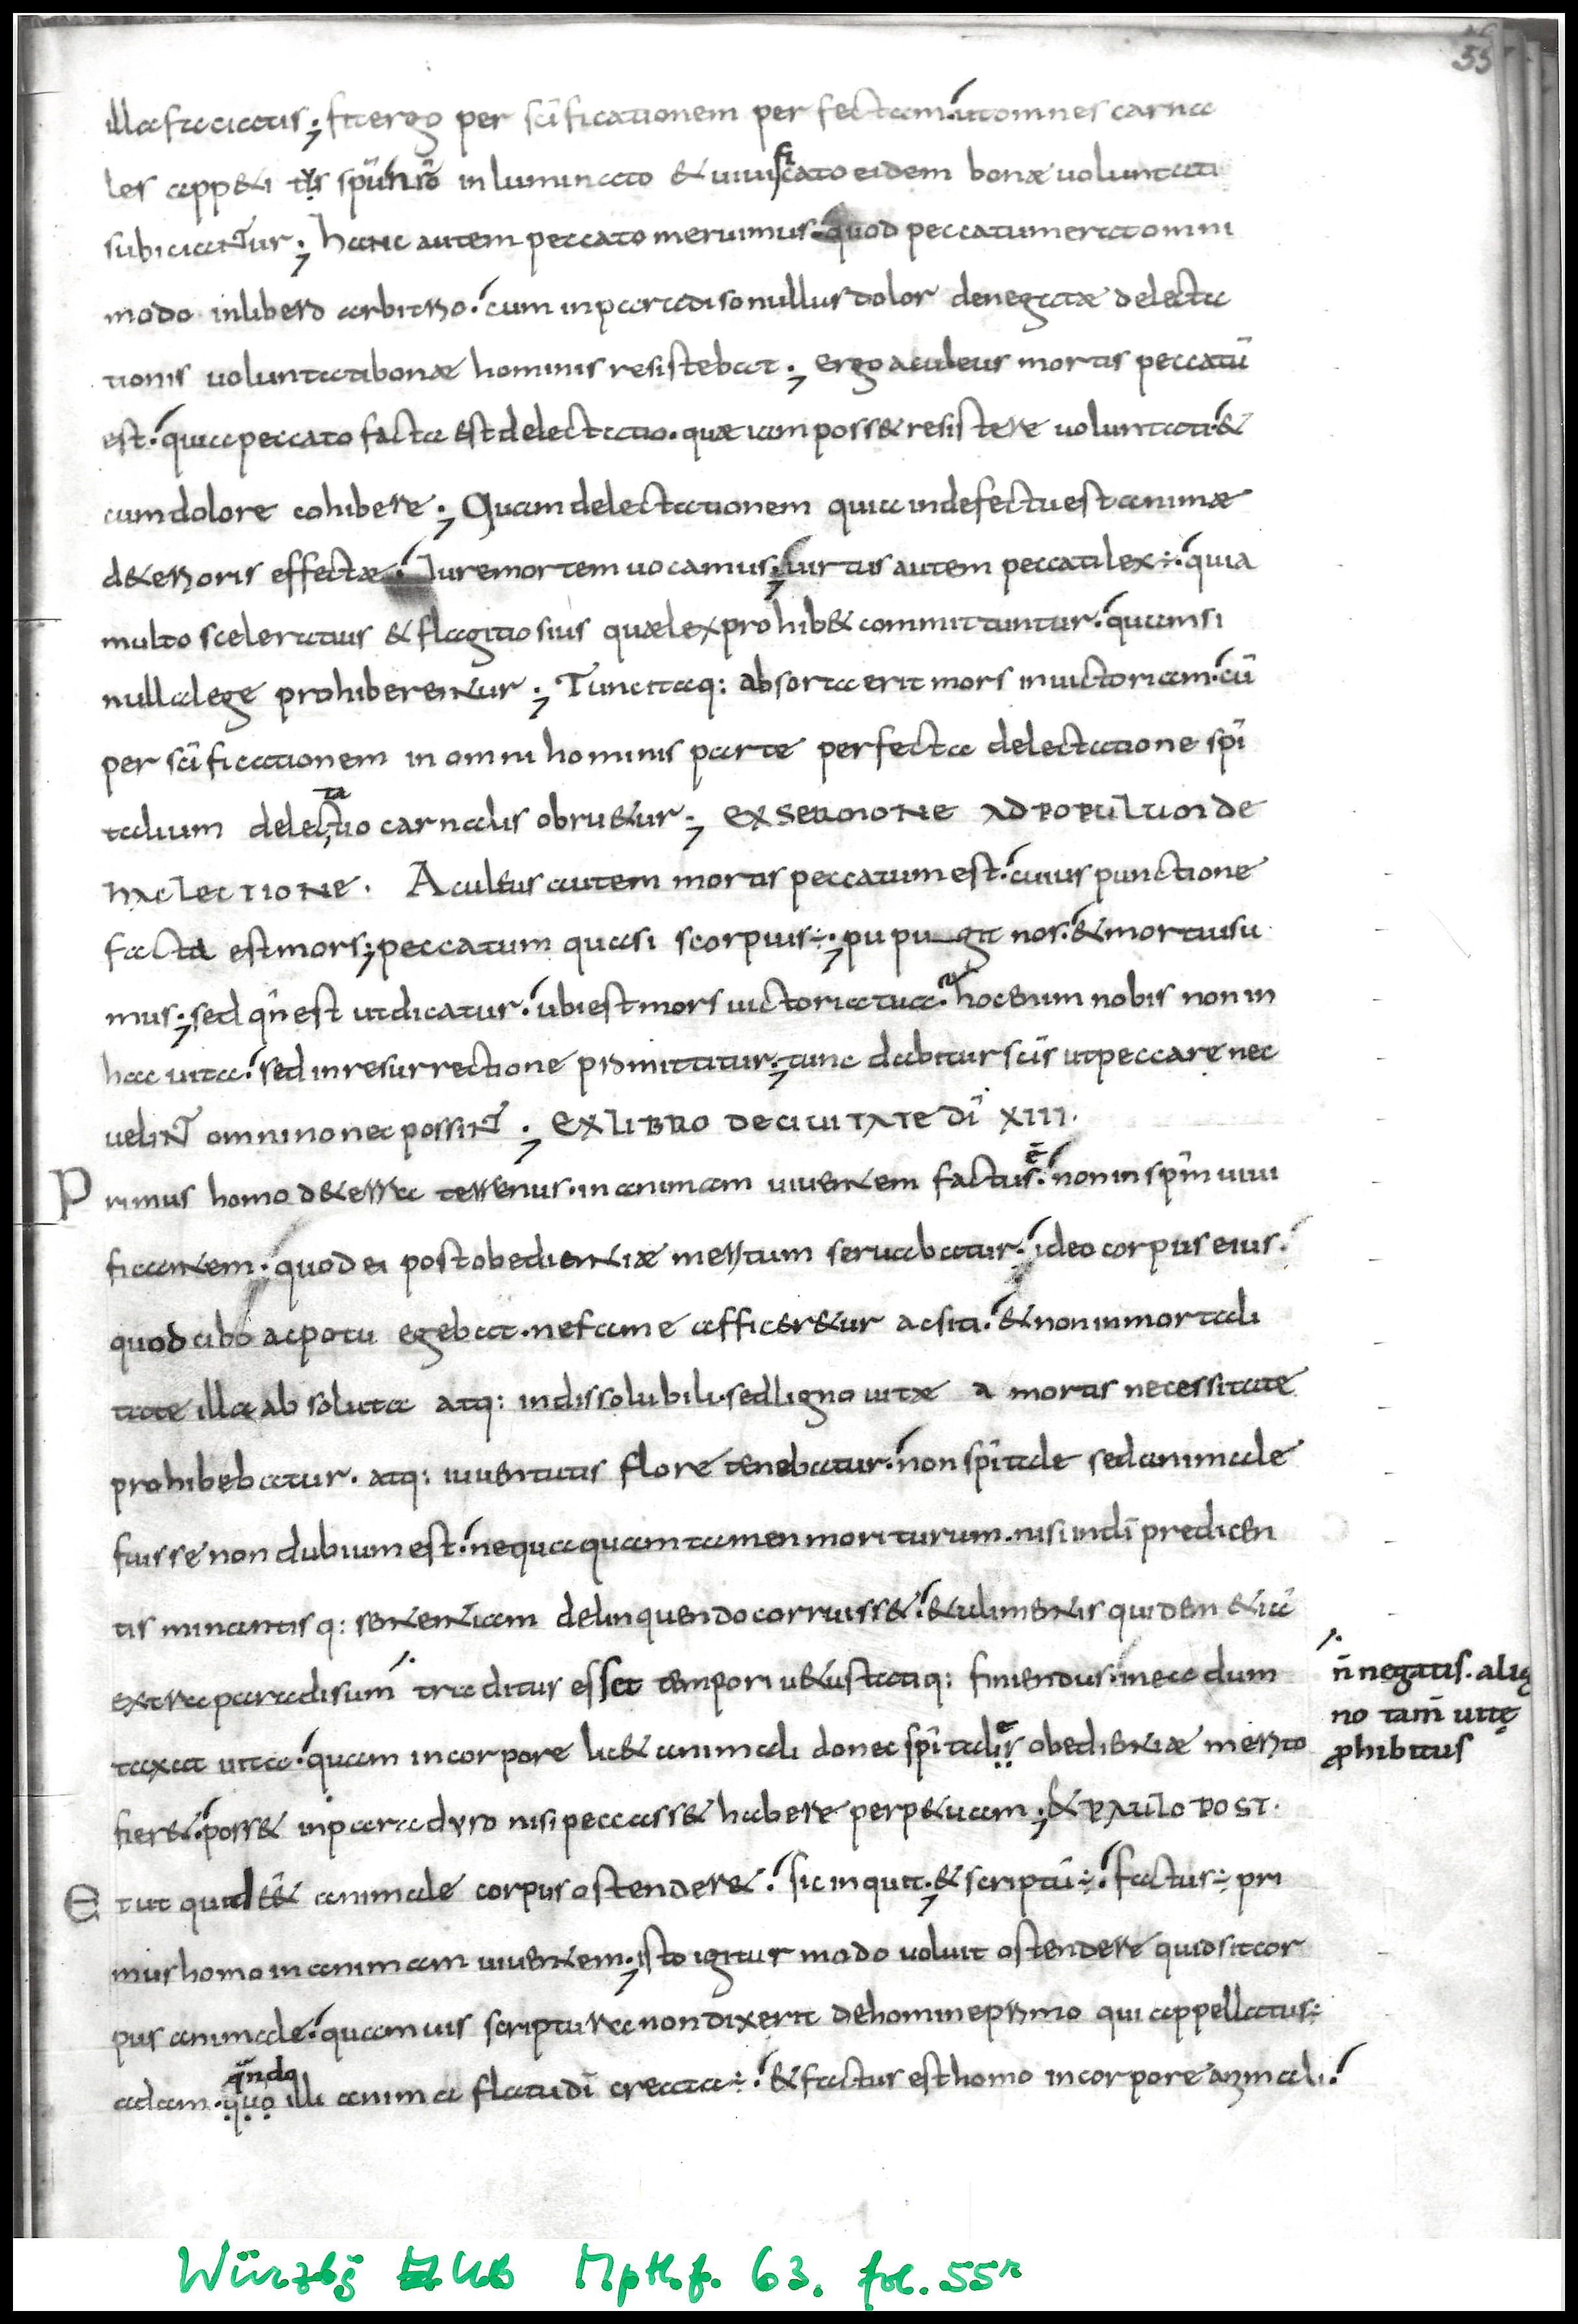 55
illa faciatis ; fit ergo per scīficationem perfectam . ut omnes carna
les app&itus spūi nrō inluminato & uiuificato eidem bonæ uoluntati
subiciantur ; hanc autem peccato meruimus . quod peccatum erat omni
modo in libero arbitrio . cum in paradiso nullus dolor denegatæ delecta
tionis uoluntati bonæ hominis resistebat ; ergo aculeus mortis peccatū
est . quia peccato facta est delectatio . quæ iam poss& resistere uoluntati . &
cum dolore cohibere ; Quam delectationem quia in defectu est animæ
d&erioris effectæ . Iure mortem uocamus ; uirtus autem peccati lex ÷ . quia
multo sceleratius & flagitiosius quæ lex prohib& committuntur . quam si
nulla lege prohiberentur ; Tunc itaq: absorta erit mors in uictoriam . cū
per scīficationem in omni hominis parte perfecta delectatione spī
talium delectatio carnalis obru&ur ; EX SERMONE AD POPULUM DE
HAC LECTIONE . Aculeus autem mortis peccatum est . cuius punctione
facta est mors ; peccatum quasi scorpius ÷ ; pupugit nos . & mortui su
mus ; sed qn̄ est ut dicatur . ubi est mors uictoria tua . hoc enim nobis non in
hac uita . sed in resurrectione promittitur ; tunc dabitur scīs ut peccare nec
uelint omnino nec possint ; EX LIBRO DE CIUITATE DĪ XIII .
Primus homo d& erra terrenus . in animam uiuentem factus ē . non in spm̄ uiui
ficantem . quod ei post obedientiæ meritum seruabatur . ideo corpus eius .
quod cibo ac potu egebat . ne fame affícer&ur ac siti . & non inmortali
tate illa absoluta atq: indissolubili . sed ligno uitæ a mortis necessitate
prohibebatur . atq: iuuentutis flore tenebatur . non spītale sed animale
fuisse non dubium est . nequaquam tamen moriturum . nisi in dī predicen
tis minantisq: sententiam delinquendo corruiss& . & alimentis quidem &iā
extra paradisum traditus esset tempori u&ustatiq: finiendus . in ea dum
n̄ negatis . a lig
no tam̄ uitę
prohibitus
taxat uita . quam in corpore lic& animali donec spītale obedientiæ merito
fier& . poss& in paradyso nisi peccass& habere perp&uam ; & PAULO POST .
Et ut quid ē & animale corpus ostender& . sic inquit . & scriptū ÷ . factus ÷ pri
mus homo in animam uiuentem ; isto igitur modo uoluit ostendere quid sit cor
pus animale . quamuis scriptura non dixerit de homine primo qui appellatus ÷
adam . qn̄do illi anima flatu dī creata ÷ . & factus est homo in corpore animali .
Würzbg UB Mp.th.f. 63. fol. 55r